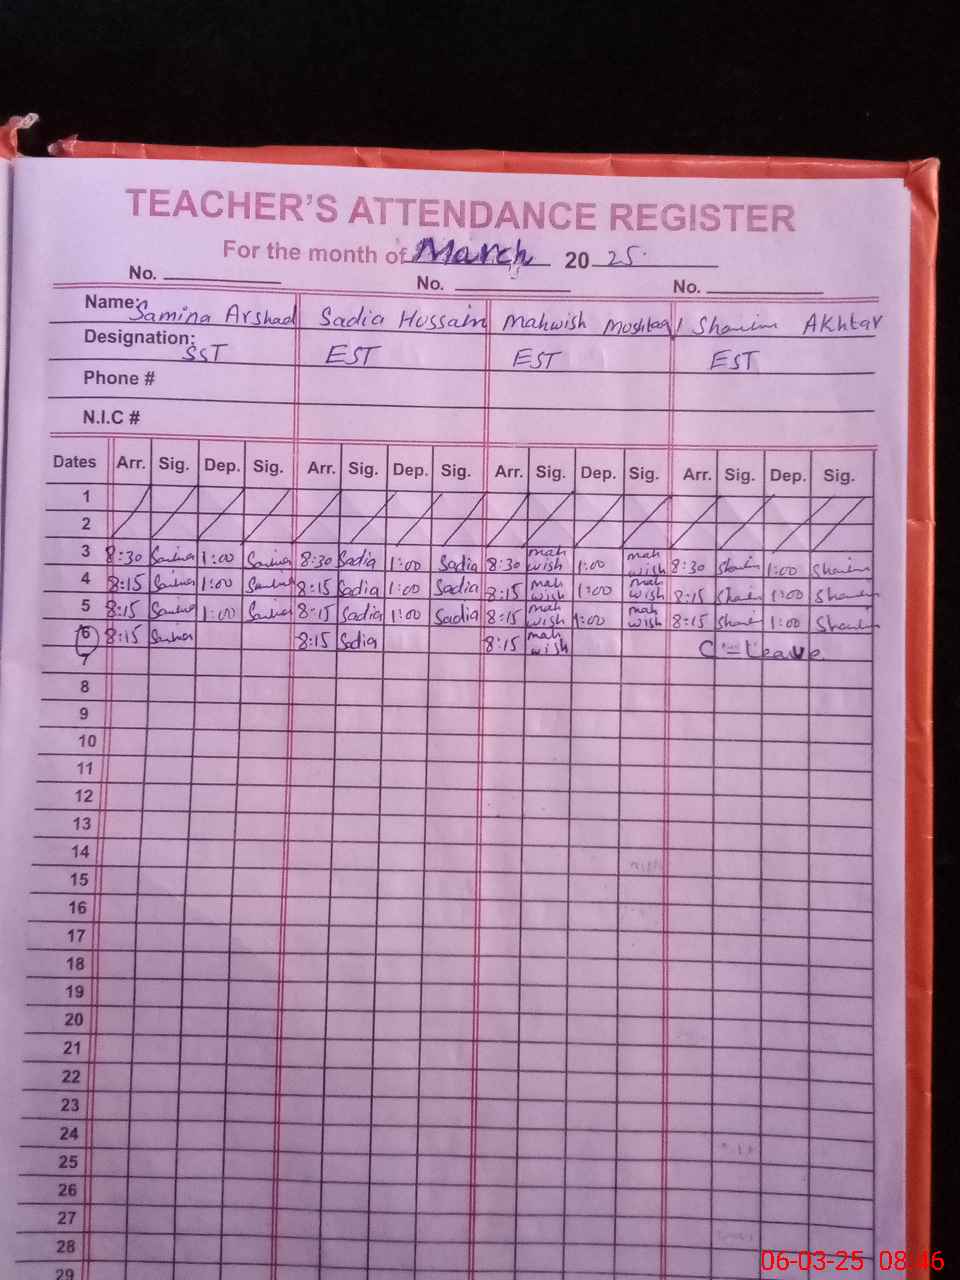 TEACHER'S ATTENDANCE REGISTER
For the month of March 2025
No. No. No.
Name: Samina Arshad Sadia Hussain Mahwish Mushtaq Akhtar
Designation: SST EST EST EST
Phone #
N.I.C #
Dates Arr. Sig. Dep. Sig. Arr. Sig. Dep. Sig. Arr. Sig. Dep. Sig. Arr. Sig. Dep. Sig.
1
2
3 8:30 Samina 1:00 Samina 8:30 Sadia 1:00 Sadia 8:30 mah wish 1:00 mah wish 8:30 1:00
4 8:15 Samina 1:00 Samina 8:15 Sadia 1:00 Sadia 8:15 mah wish 1:00 mah wish 8:15 1:00
5 8:15 Samina 1:00 Samina 8:15 Sadia 1:00 Sadia 8:15 mah wish 1:00 mah wish 8:15 1:00
6 8:15 Samina 8:15 Sadia 8:15 mah wish C-Leave
7
8
9
10
11
12
13
14
15
16
17
18
19
20
21
22
23
24
25
26
27
28
29
06-03-25 08:46